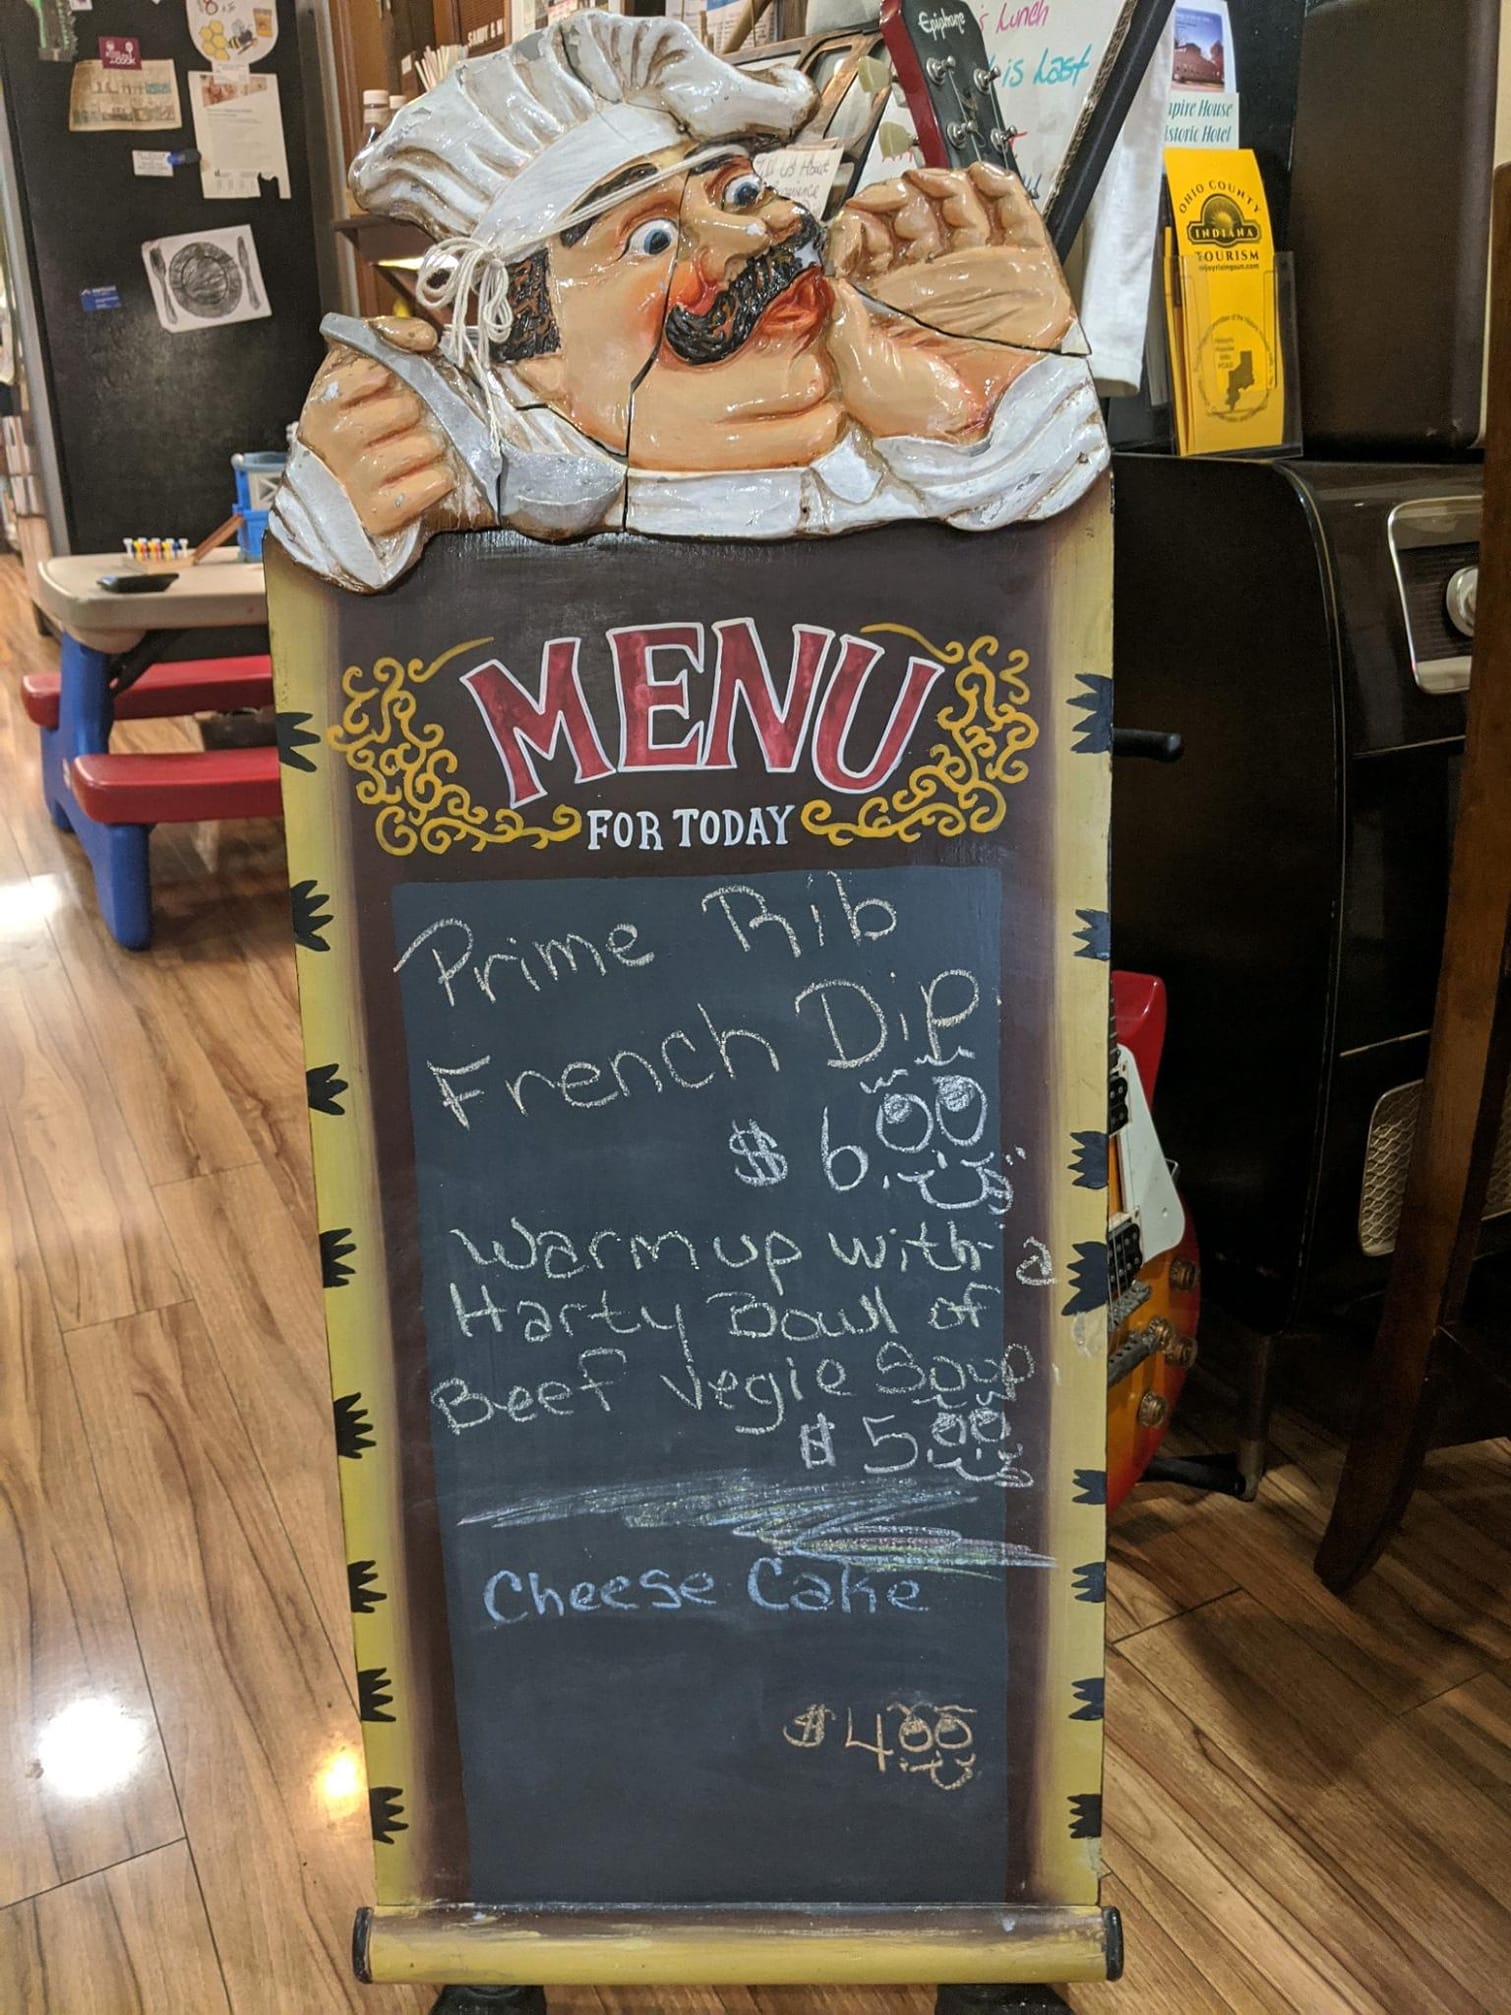 Epiphone
Lunch
is Last
Empire House
Historic Hotel
OHIO COUNTY
INDIANA
TOURISM
MENU
FOR TODAY
Prime Rib
French Dip
$6.00
Warmup with a
Harty Bowl of
Beef Vegie Soup
$5.00
Cheese Cake
$4.00